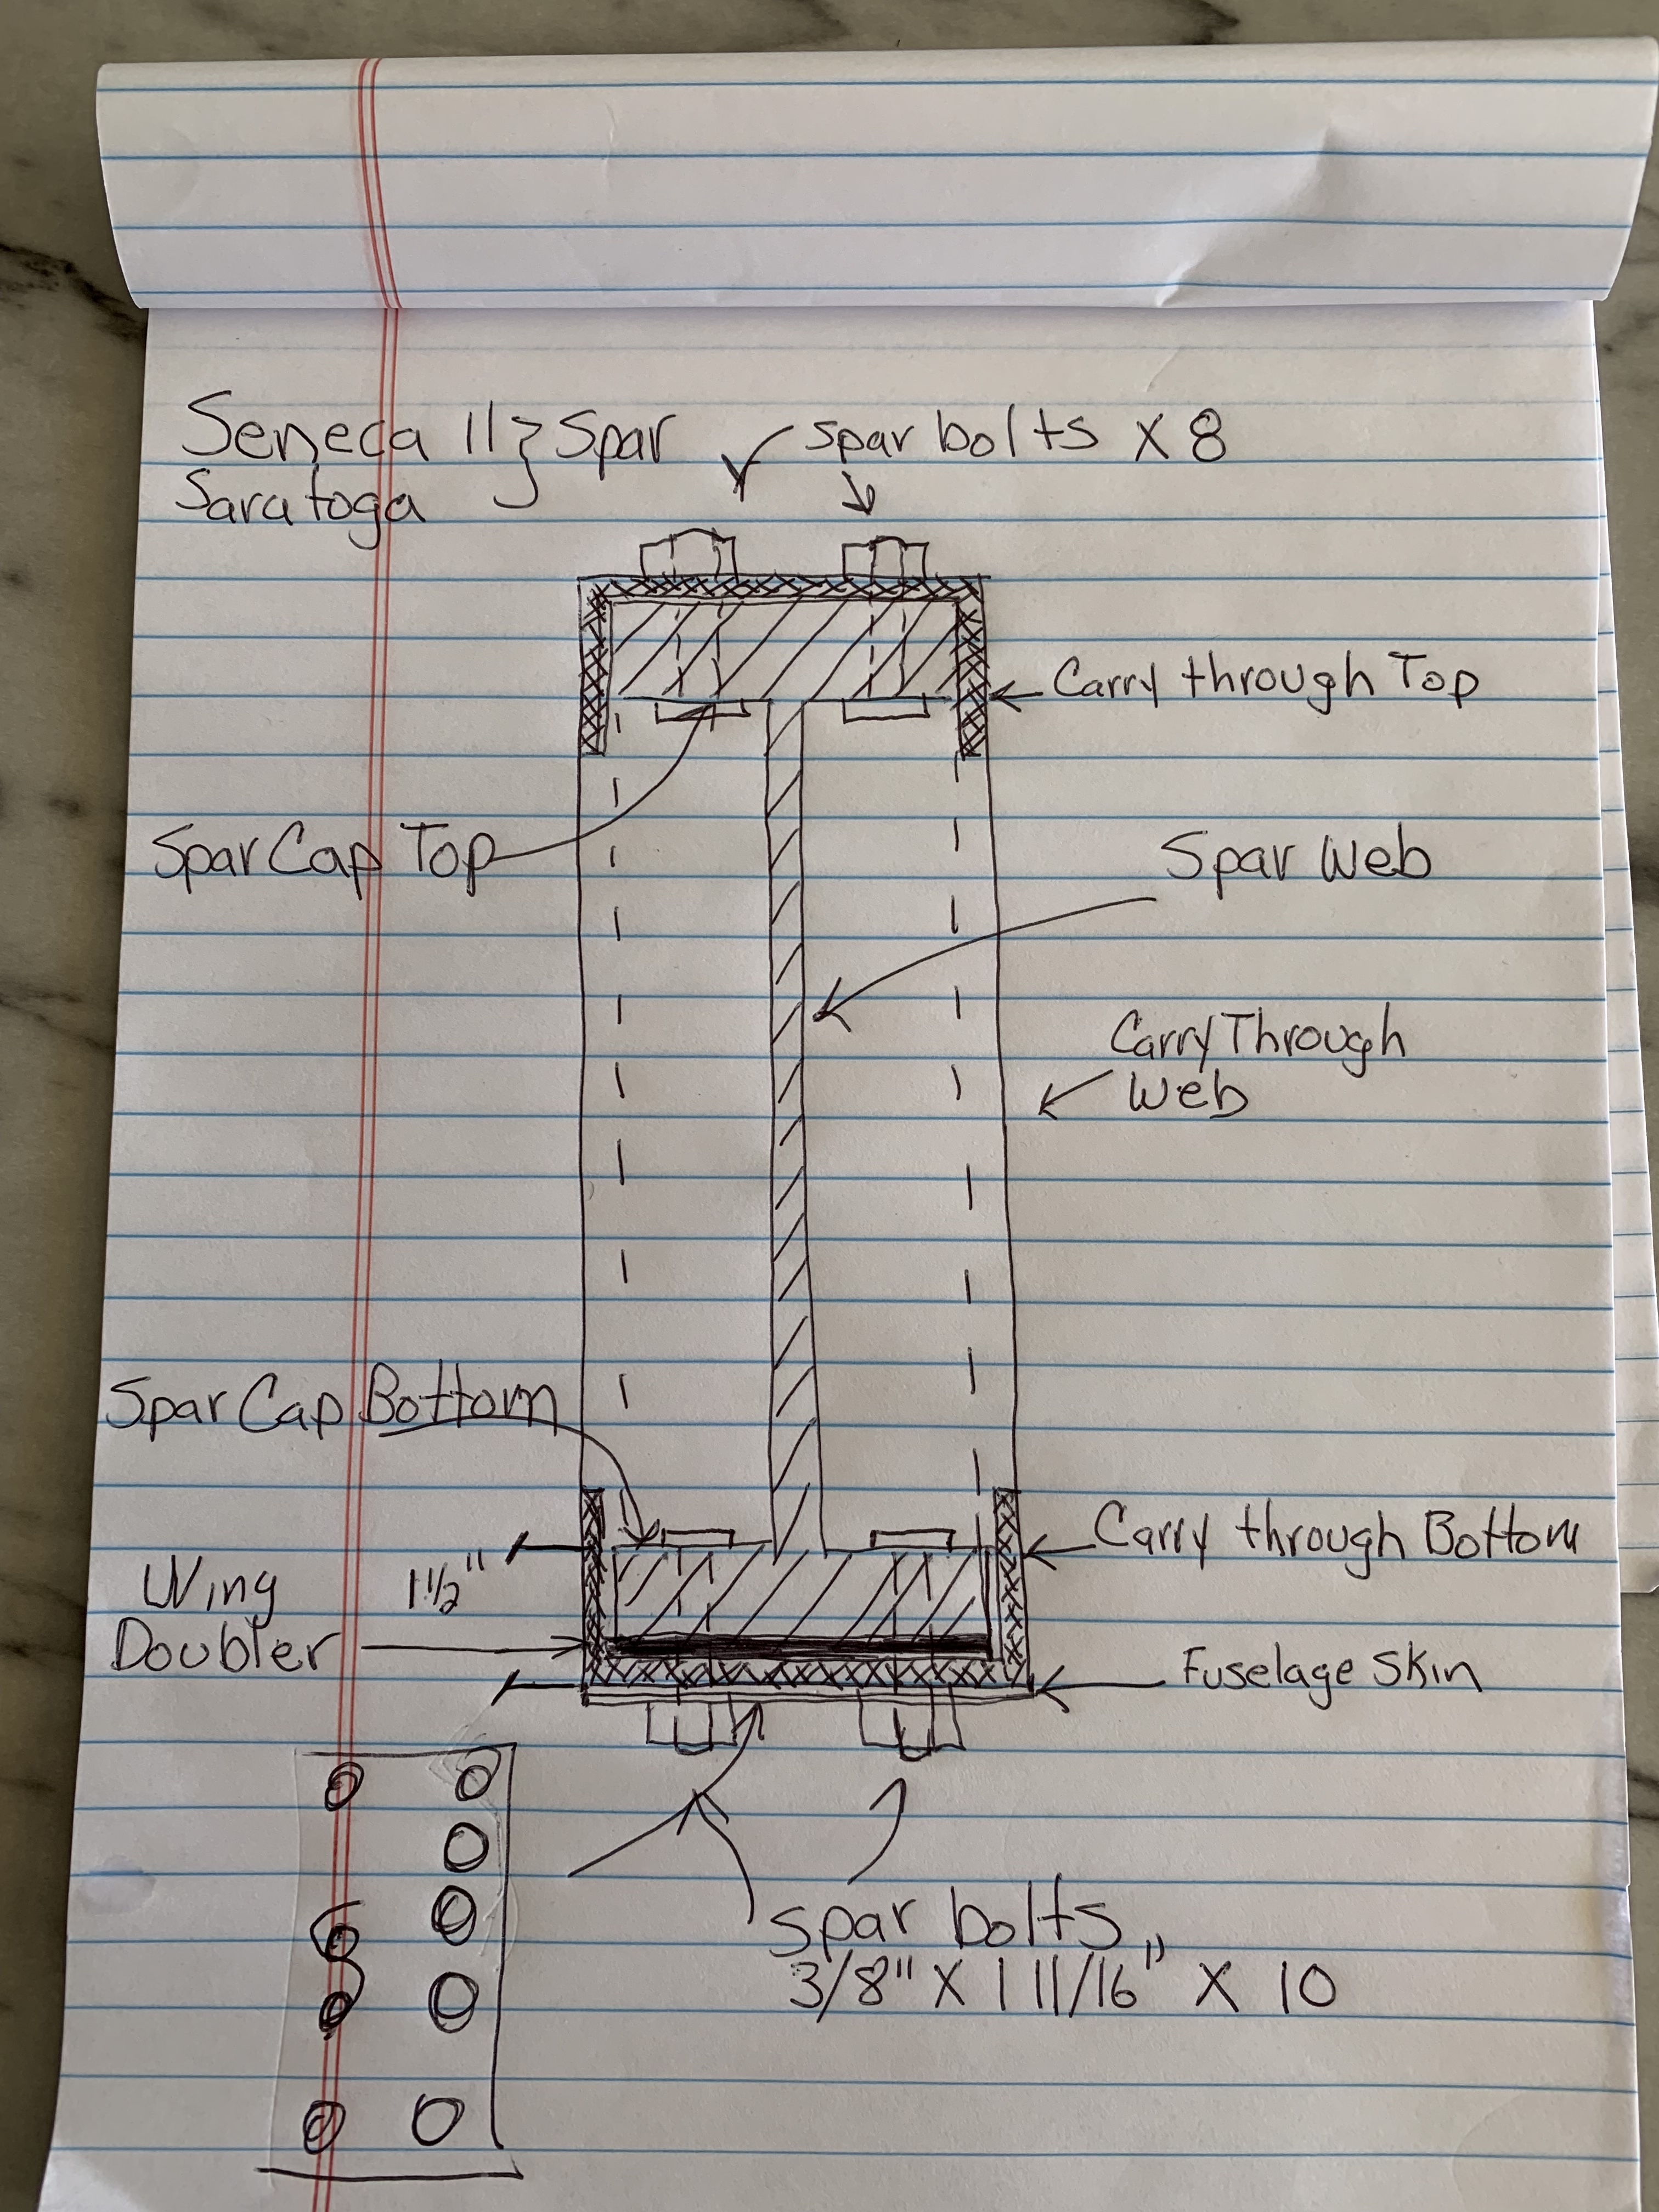 Seneca II } Spar
Saratoga
spar bolts X 8
Carry through Top
Spar Cap Top
Spar Web
Carry Through
Web
Spar Cap Bottom
Carry through Bottom
Wing
Doubler
1 1/2"
Fuselage Skin
spar bolts
3/8" X 1 11/16" X 10